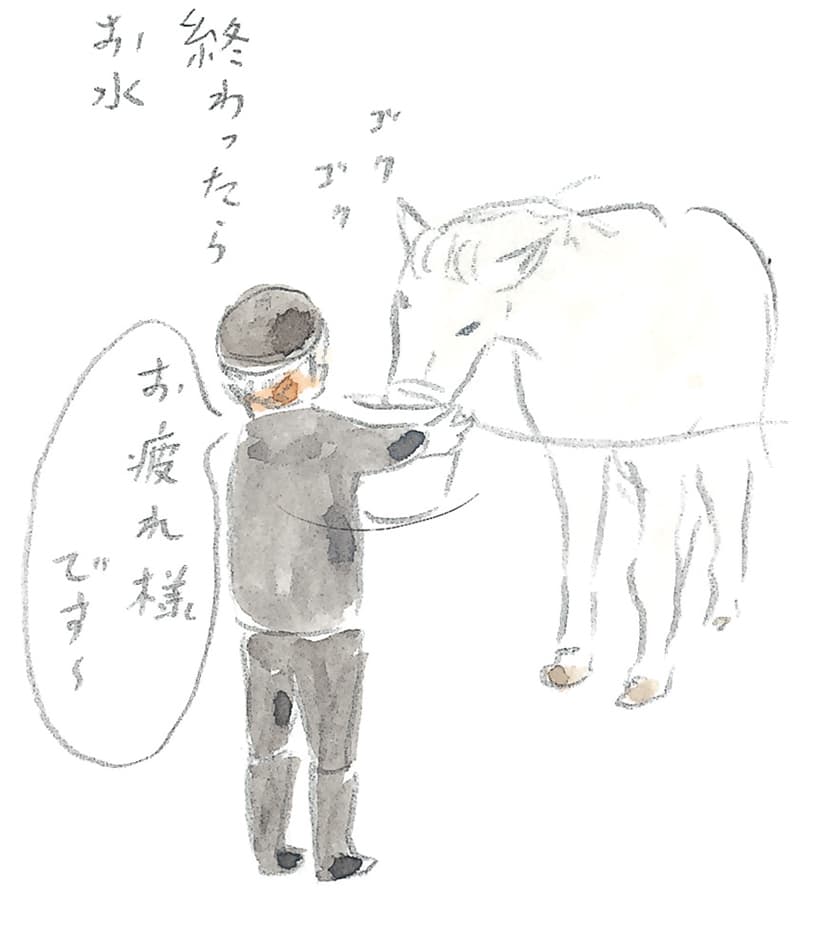 終わったら
お水
ゴク
ゴク
お疲れ様
です〜